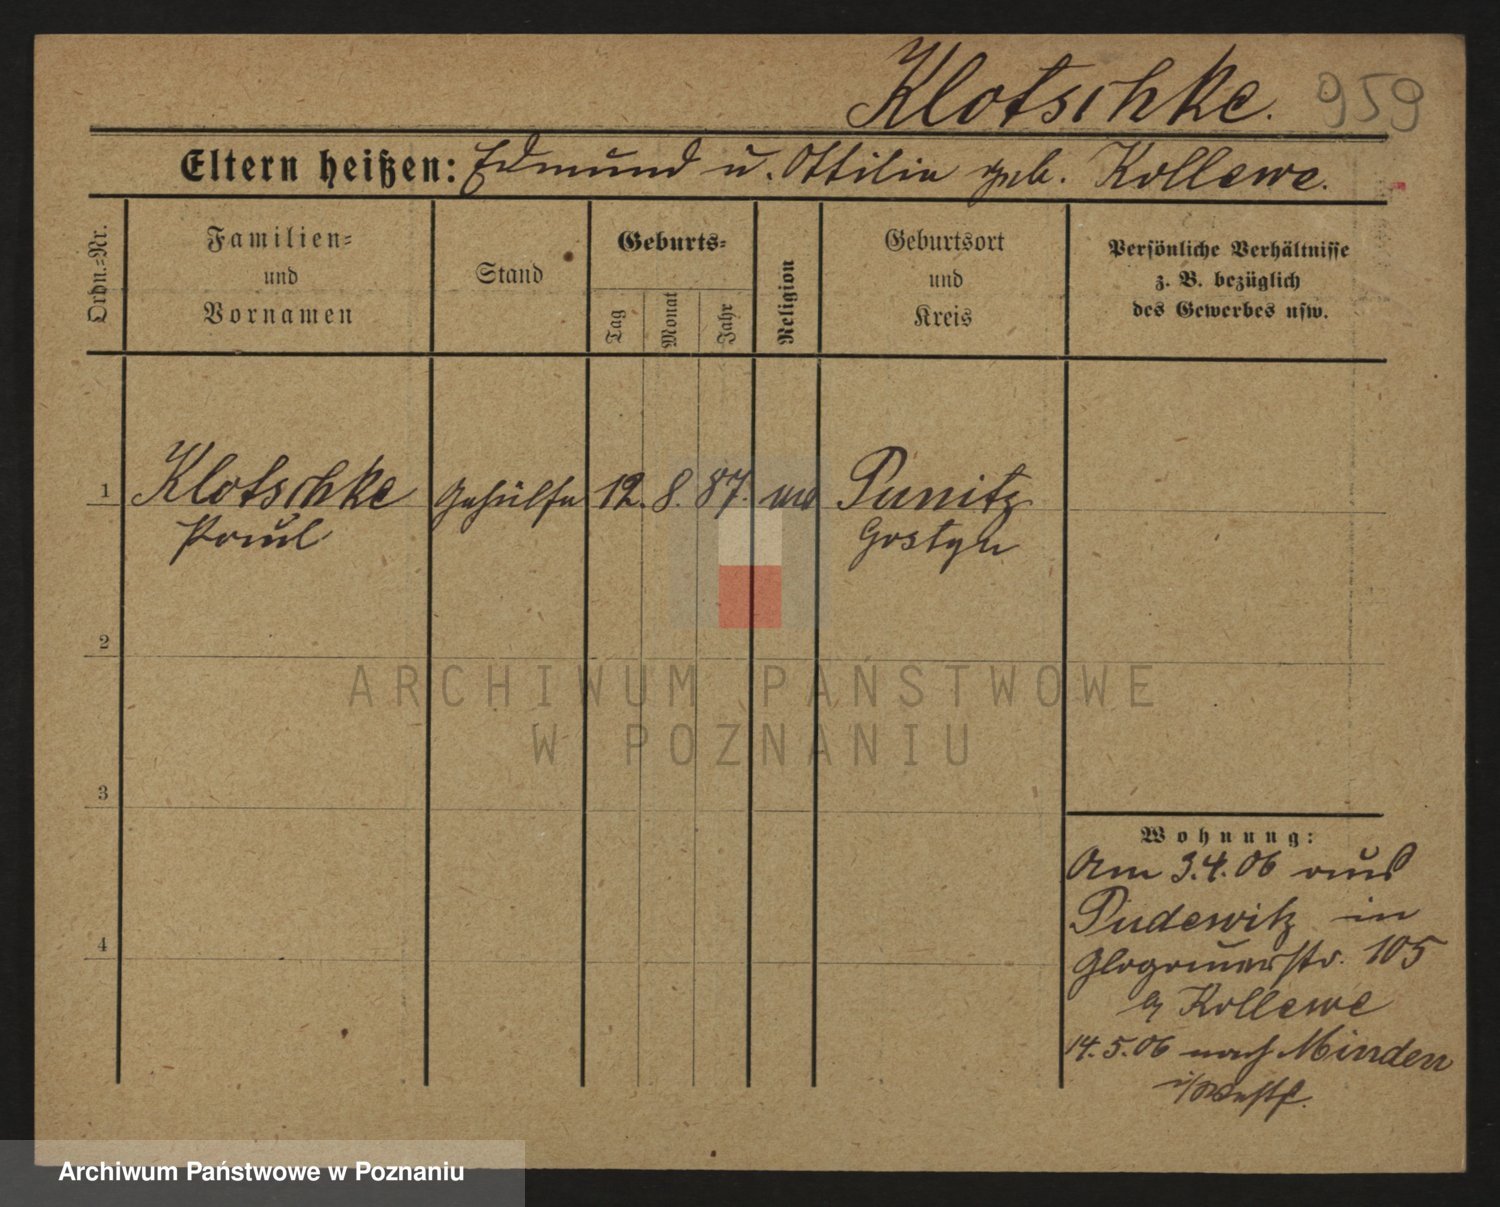 Klotschke. 959
Eltern heißen: Edmund u. Ottilie geb. Kollewe.
Ordn.-Nr.
Familien-
und
Vornamen
Stand
Geburts-
Tag
Monat
Jahr
Religion
Geburtsort
und
Kreis
Persönliche Verhältnisse
z. B. bezüglich
des Gewerbes usw.
1 Klotschke Gehülfe 12. 8. 87. Punitz
Paul Gostyn
2
3
4
Wohnung:
Am 3.4.06 aus
Pudewitz in
Glogauerstr. 105
b/ Kollewe
14.5.06 nach Minden
i/Westf.
ARCHIWUM PAŃSTWOWE
W POZNANIU
Archiwum Państwowe w Poznaniu